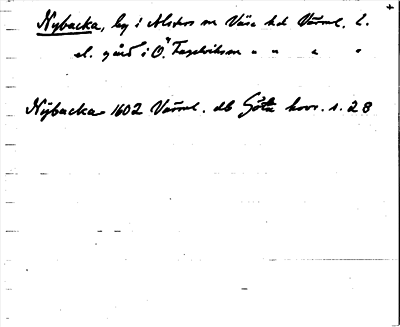 Nybacka, by i Alsters sn Väse hd Värml. l.
el. gård i Ö. Fågelviks sn " " " "
Nybacka 1602 Värml. db Göta hovr. s. 28